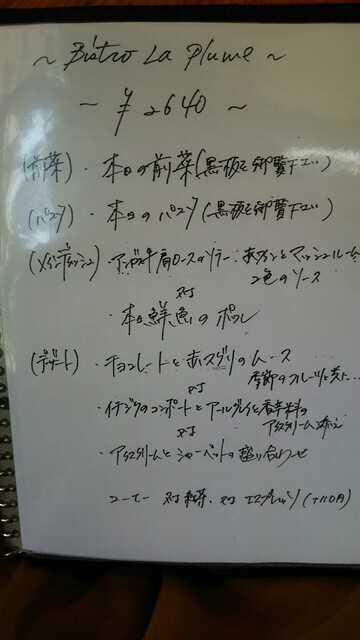 ~ Bistro La Plume ~
~ ¥2640 ~
(前菜)・本日の前菜(黒板を御覧下さい)
(パスタ)・本日のパスタ(黒板を御覧下さい)
(メインディッシュ)・アンガス牛肩ロースのソテー
2色のソース
又は
・本日鮮魚のポワレ
(デザート)・チョコレートと赤スグリのムース
季節のフルーツと共に…
又は
・イチジクのコンポートとアールグレイと香辛料の
アイスクリーム添え
又は
・アイスクリームとシャーベットの盛り合わせ
コーヒー 又は 紅茶 又は エスプレッソ(+110円)